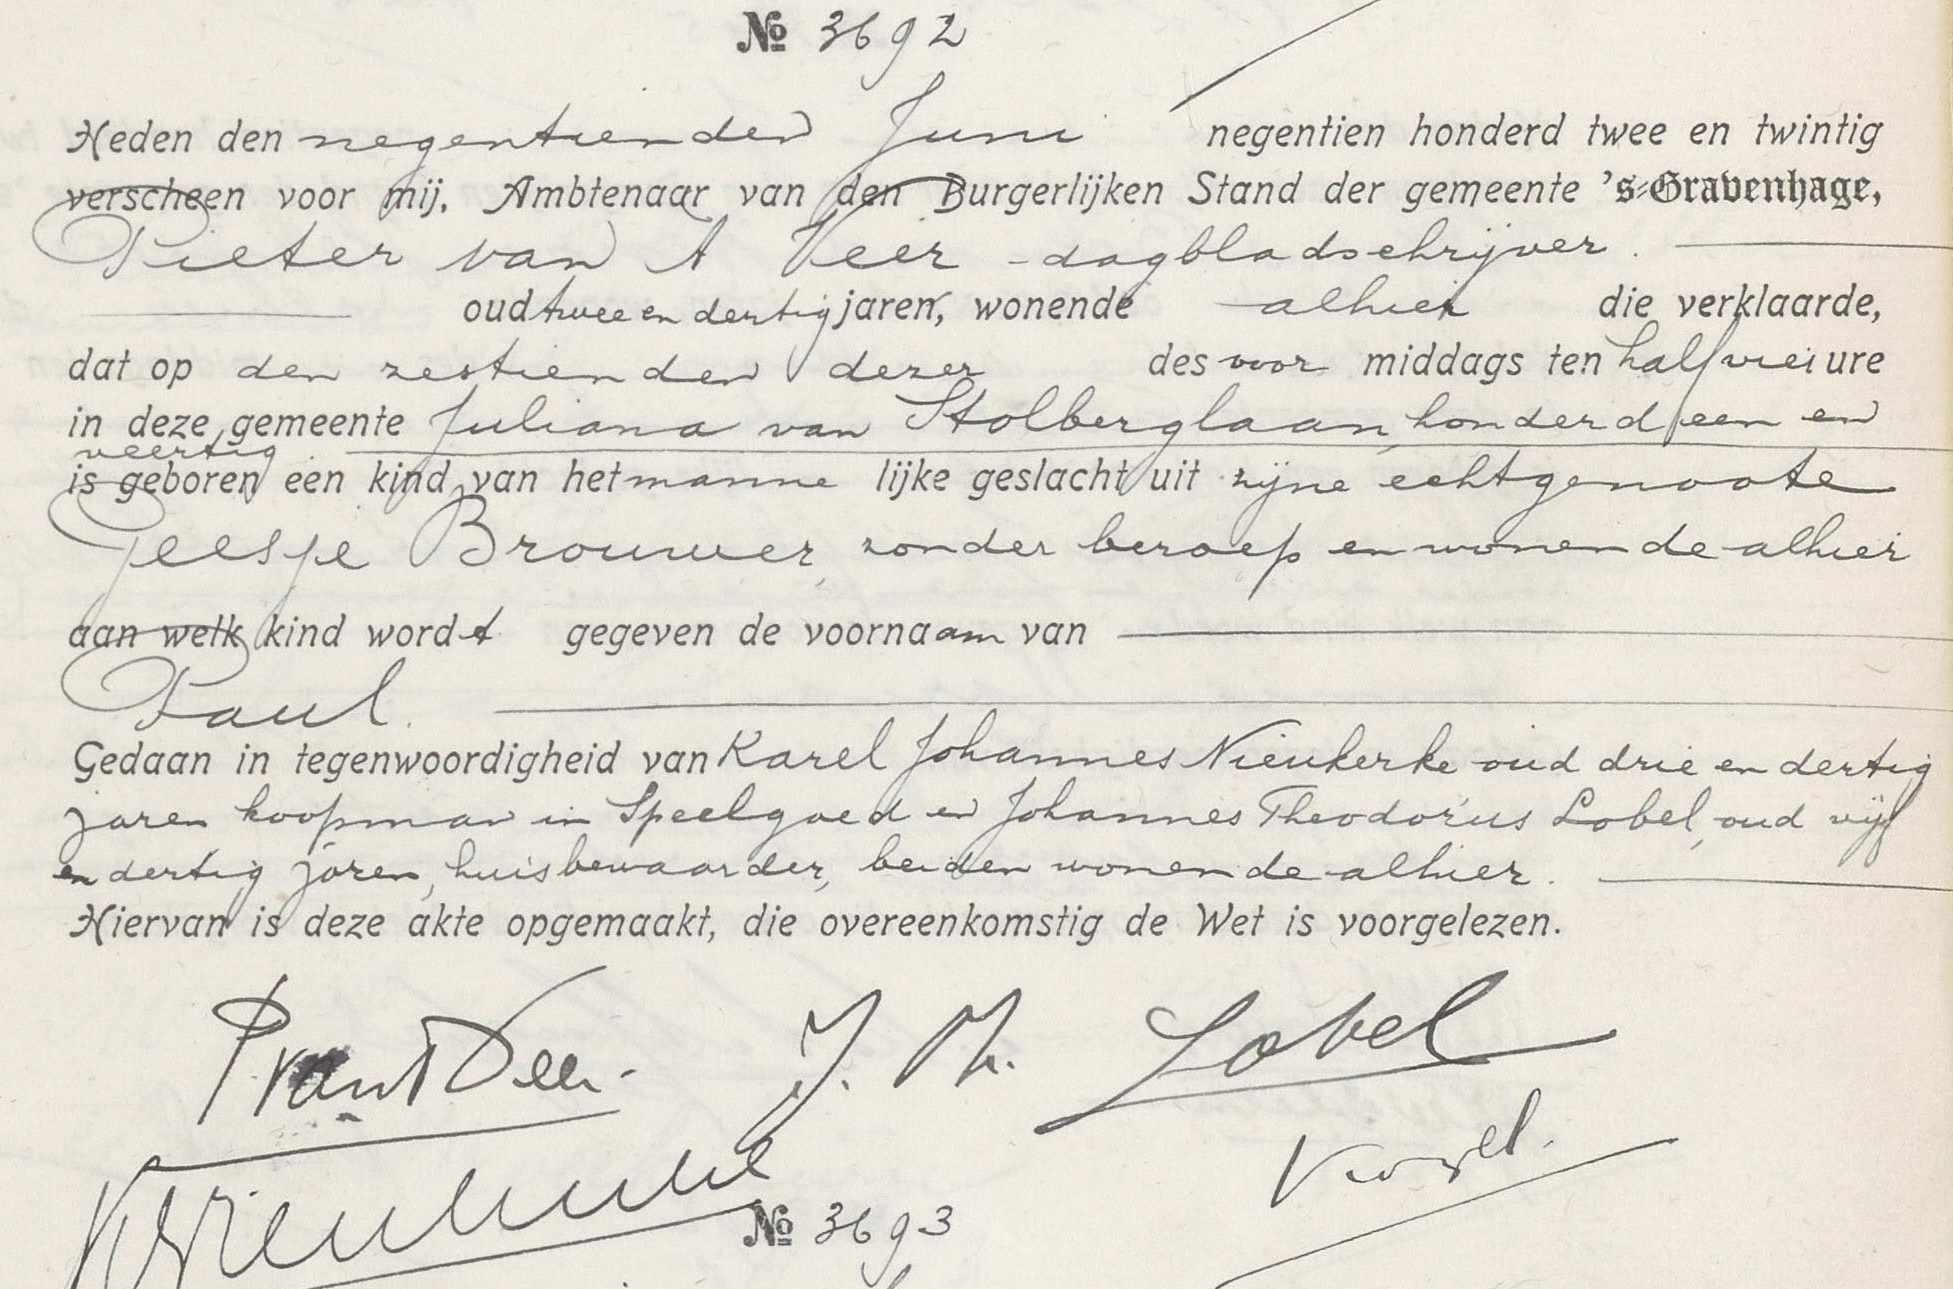 № 3692
Heden den negentienden Juni negentien honderd twee en twintig
verscheen voor mij, Ambtenaar van den Burgerlijken Stand der gemeente 's-Gravenhage,
Pieter van 't Veer dagbladschrijver.
oud twee en dertig jaren, wonende alhier die verklaarde,
dat op den zestienden dezer des voor middags ten half vier ure
in deze gemeente Juliana van Stolberglaan, honderd een en
veertig
is geboren een kind van het manne lijke geslacht uit zijne echtgenoote
Geesje Brouwer, zonder beroep en wonende alhier
aan welk kind word t gegeven de voornaam van
Paul.
Gedaan in tegenwoordigheid van Karel Johannes Nieukerke oud drie en dertig
jaren koopman in Speelgoed en Johannes Theodorus Lobel, oud vijf
en dertig jaren, huisbewaarder, beiden wonende alhier.
Hiervan is deze akte opgemaakt, die overeenkomstig de Wet is voorgelezen.
P van 't Veer. J. Th. Lobel
№ 3693